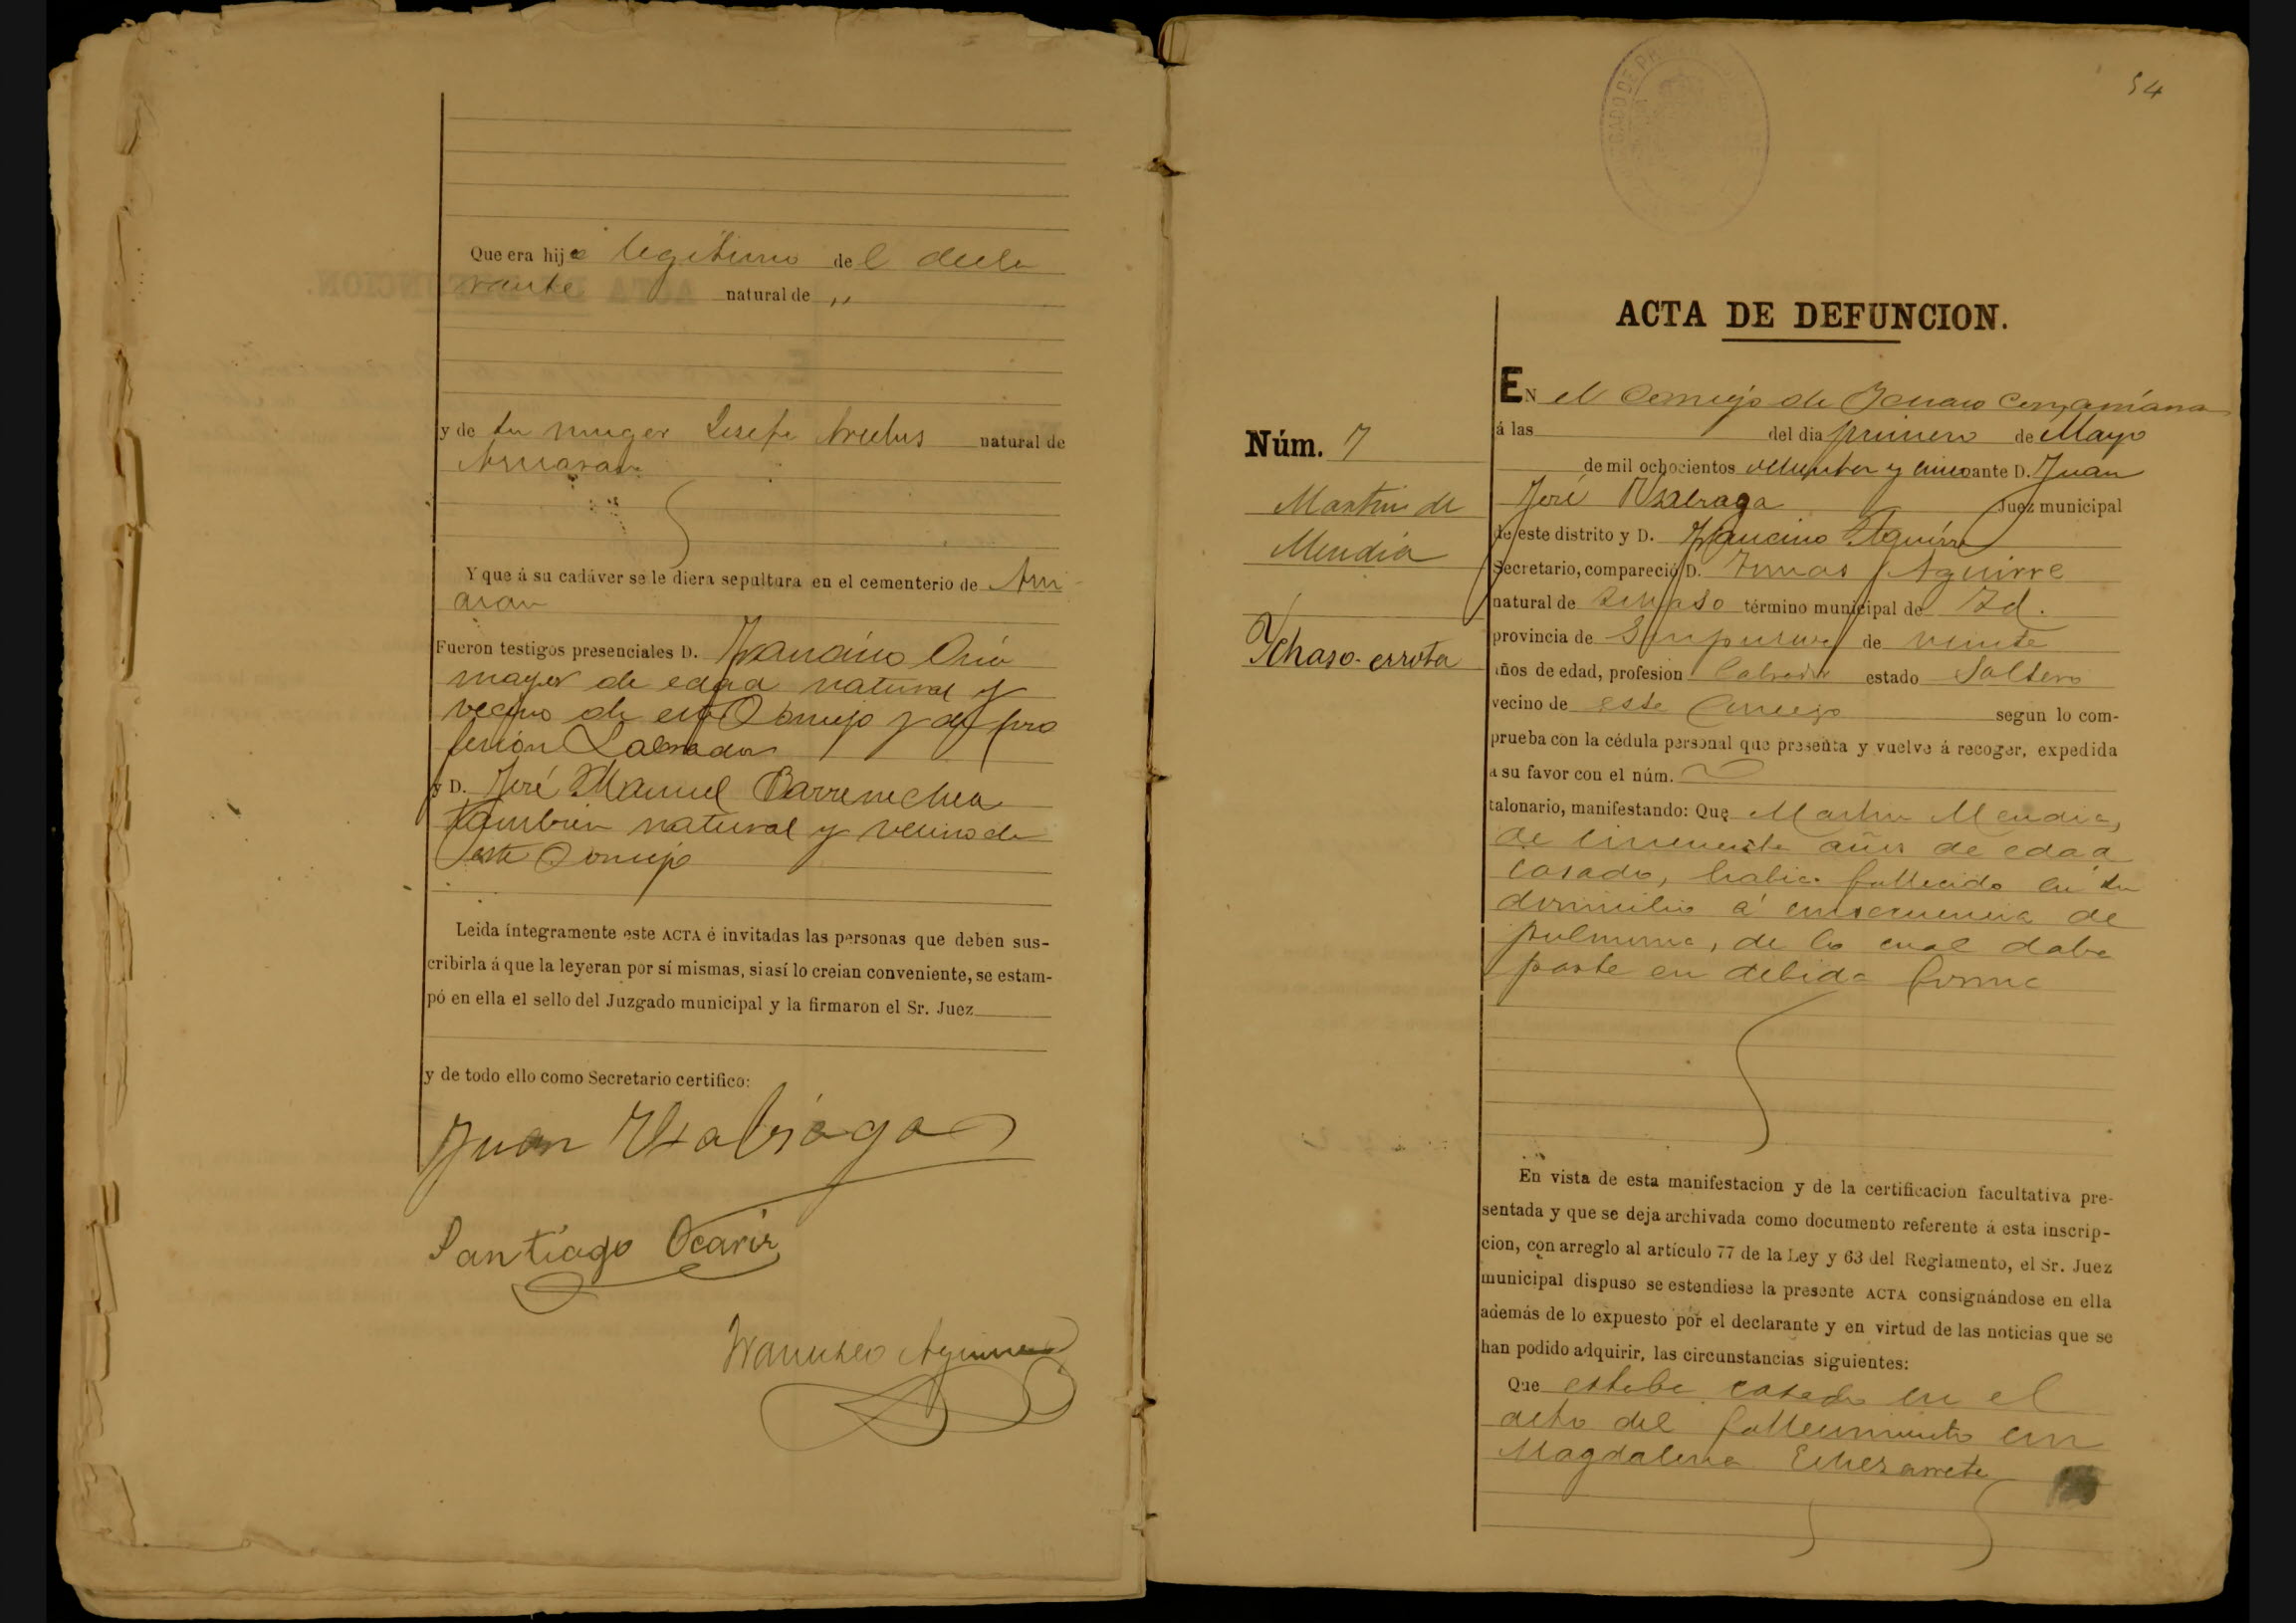 Que era hijo legitimo de l decla
rante natural de "
y de su muger Josefa natural de
Y que á su cadáver se le diera sepultura en el cementerio de
Fueron testigos presenciales D. Francisco
mayor de edad natural y
vecino de este Concejo y de pro
fesión Labrador
y D. José Manuel Barrenechea
tambien natural y vecino de
este Concejo
Leida íntegramente este ACTA é invitadas las personas que deben sus-
cribirla á que la leyeran por sí mismas, si así lo creian conveniente, se estam-
pó en ella el sello del Juzgado municipal y la firmaron el Sr. Juez
y de todo ello como Secretario certifico:
Juan Usabiaga
Santiago Ocariz
Francisco Aguirre
54
ACTA DE DEFUNCION.
Núm. 7
Martin de
Mendia
Ychaso-errota
EN el Concejo de
á las del dia primero de Mayo
de mil ochocientos ochenta y cinco ante D. Juan
José Usabiaga Juez municipal
de este distrito y D. Francisco Aguirre
Secretario, compareció D. Tomas Aguirre
natural de término municipal de Id.
provincia de Guipuzcoa de veinte
años de edad, profesion labrador estado Soltero
vecino de este Concejo segun lo com-
prueba con la cédula personal que presenta y vuelve á recoger, expedida
a su favor con el núm.
talonario, manifestando: Que Martin Mendia,
de cincuenta años de edad
casado, habia fallecido en su
domicilio á consecuencia de
de lo cual daba
parte en debida forma
En vista de esta manifestacion y de la certificacion facultativa pre-
sentada y que se deja archivada como documento referente á esta inscrip-
cion, con arreglo al artículo 77 de la Ley y 63 del Reglamento, el Sr. Juez
municipal dispuso se estendiese la presente ACTA consignándose en ella
además de lo expuesto por el declarante y en virtud de las noticias que se
han podido adquirir, las circunstancias siguientes:
Que estaba casado en el
acto del fallecimiento con
Magdalena Echezarreta